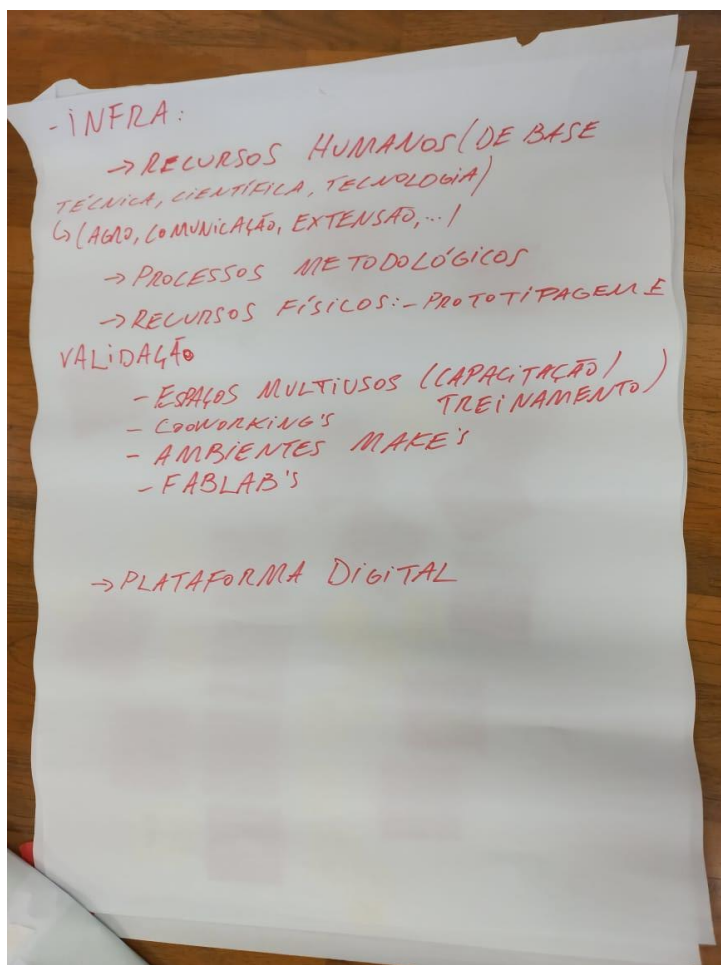 - INFRA:
→ RECURSOS HUMANOS (DE BASE
TÉCNICA, CIENTÍFICA, TECNOLOGIA)
↳ (AGRO, COMUNICAÇÃO, EXTENSÃO, ...)
→ PROCESSOS METODOLÓGICOS
→ RECURSOS FÍSICOS: - PROTOTIPAGEM E
VALIDAÇÃO
- ESPAÇOS MULTIUSOS (CAPACITAÇÃO/
TREINAMENTO)
- COOWORKING'S
- AMBIENTES MAKE'S
- FABLAB'S
→ PLATAFORMA DIGITAL